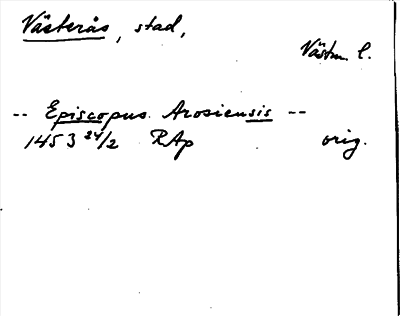 Västerås, stad,
Västm. l.
-- Episcopus Arosiensis --
1453 24/2 RAp orig.